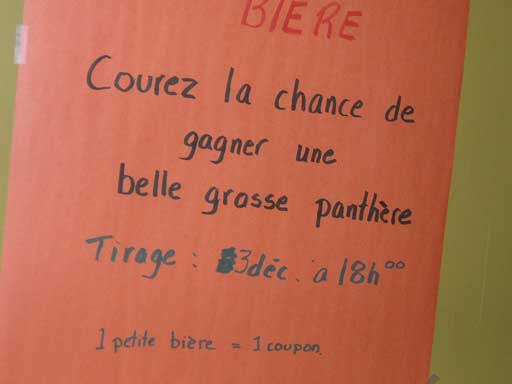 BIÈRE
Courez la chance de
gagner une
belle grosse panthère
Tirage : 3 déc. à 18h⁰⁰
1 petite bière = 1 coupon.